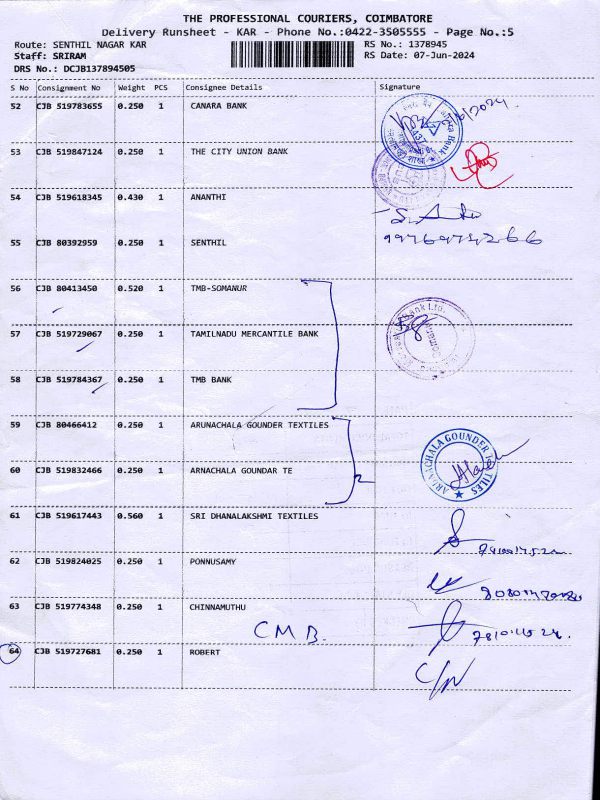 THE PROFESSIONAL COURIERS, COIMBATORE
Delivery Runsheet - KAR - Phone No.:0422-3505555 - Page No.:5
Route: SENTHIL NAGAR KAR RS No.: 1378945
Staff: SRIRAM RS Date: 07-Jun-2024
DRS No.: DCJB137894505
S No Consignment No Weight PCS Consignee Details Signature
52 CJB 519783655 0.250 1 CANARA BANK
53 CJB 519847124 0.250 1 THE CITY UNION BANK
54 CJB 519618345 0.430 1 ANANTHI
55 CJB 80392959 0.250 1 SENTHIL
56 CJB 80413450 0.520 1 TMB-SOMANUR
57 CJB 519729067 0.250 1 TAMILNADU MERCANTILE BANK
58 CJB 519784367 0.250 1 TMB BANK
59 CJB 80466412 0.250 1 ARUNACHALA GOUNDER TEXTILES
60 CJB 519832466 0.250 1 ARNACHALA GOUNDAR TE 2
ARUNACHALA GOUNDER TEXTILES
61 CJB 519617443 0.560 1 SRI DHANALAKSHMI TEXTILES
62 CJB 519824025 0.250 1 PONNUSAMY
63 CJB 519774348 0.250 1 CHINNAMUTHU
C.M.B.
64 CJB 519727681 0.250 1 ROBERT
C/N